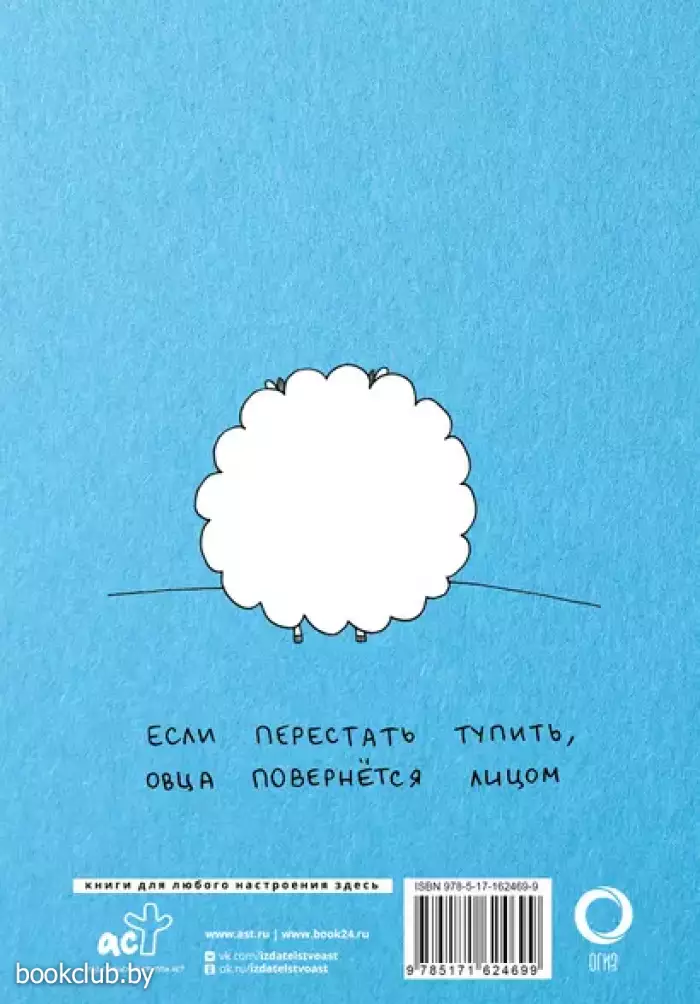 ЕСЛИ ПЕРЕСТАТЬ ТУПИТЬ,
ОВЦА ПОВЕРНЁТСЯ ЛИЦОМ
книги для любого настроения здесь
аст
www.ast.ru | www.book24.ru
vk.com/izdatelstvoast
ok.ru/izdatelstvoast
ISBN 978-5-17-162469-9
9 785171 624699
ОГИЗ
bookclub.by